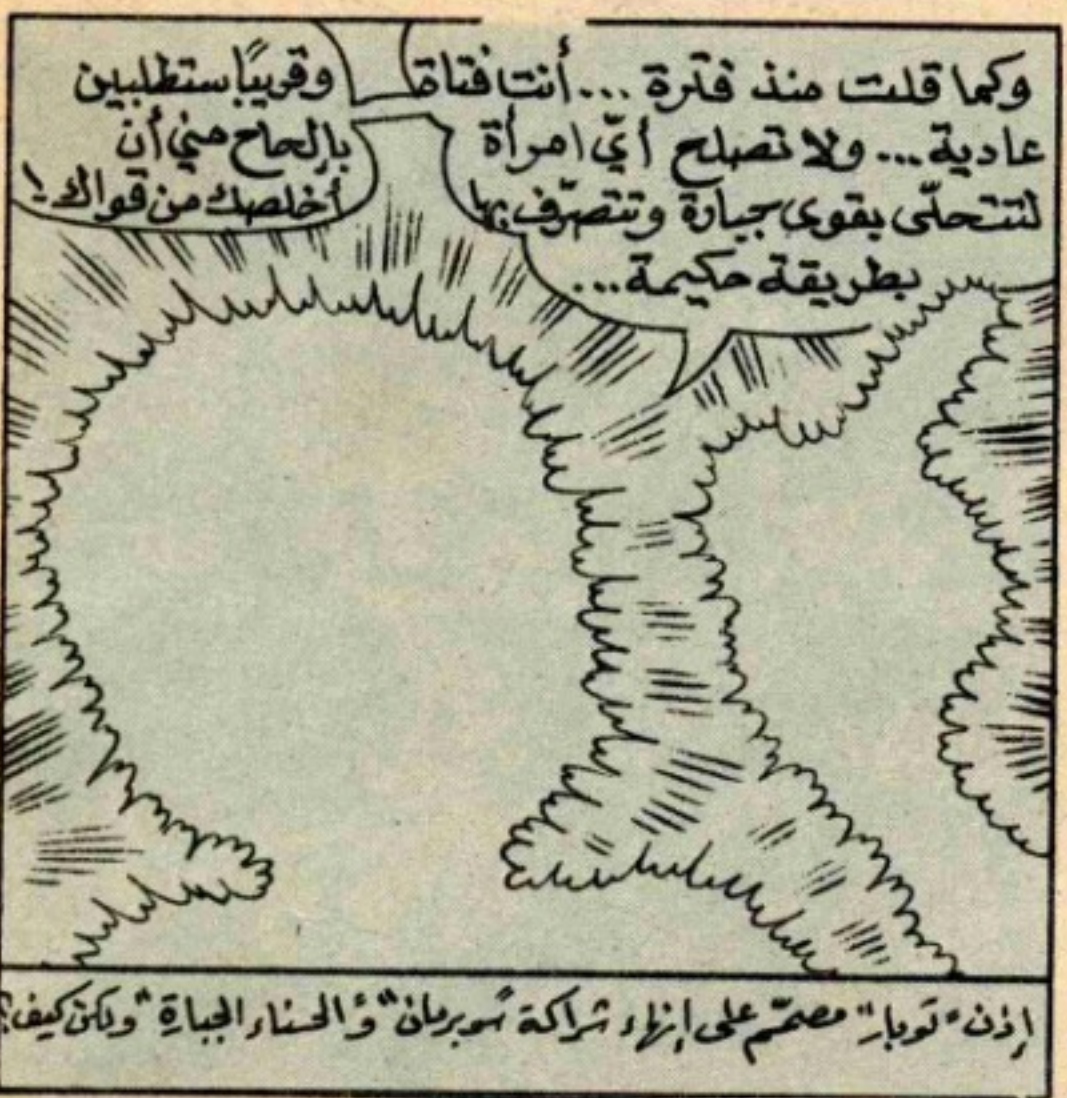 وكما قلت منذ فترة ... أنت فتاة
عادية ... ولا تصلح أيّ امرأة
لتتحلّى بقوى جبارة وتتصرّف بها
بطريقة حكيمة ...
وقريبًا ستطلبين
بإلحاح مني أن
أخلصك من قواك!
إذن "توبار" مصمّم على إنهاء شراكة "سوبرمان" و"الحسناء الجبارة" ولكن كيف؟